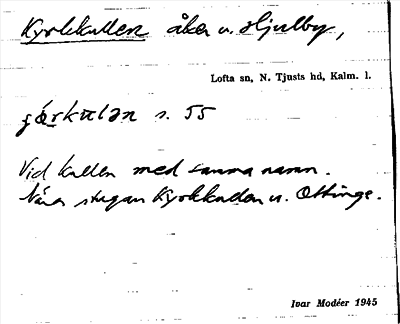 Kyrkkullen åker u. Hjulby,
Lofta sn, N. Tjusts hd, Kalm. l.
s. 55
Vid kullen med samma namn.
Nära stugan Kyrkkullen u. Ottinge.
Ivar Modéer 1945